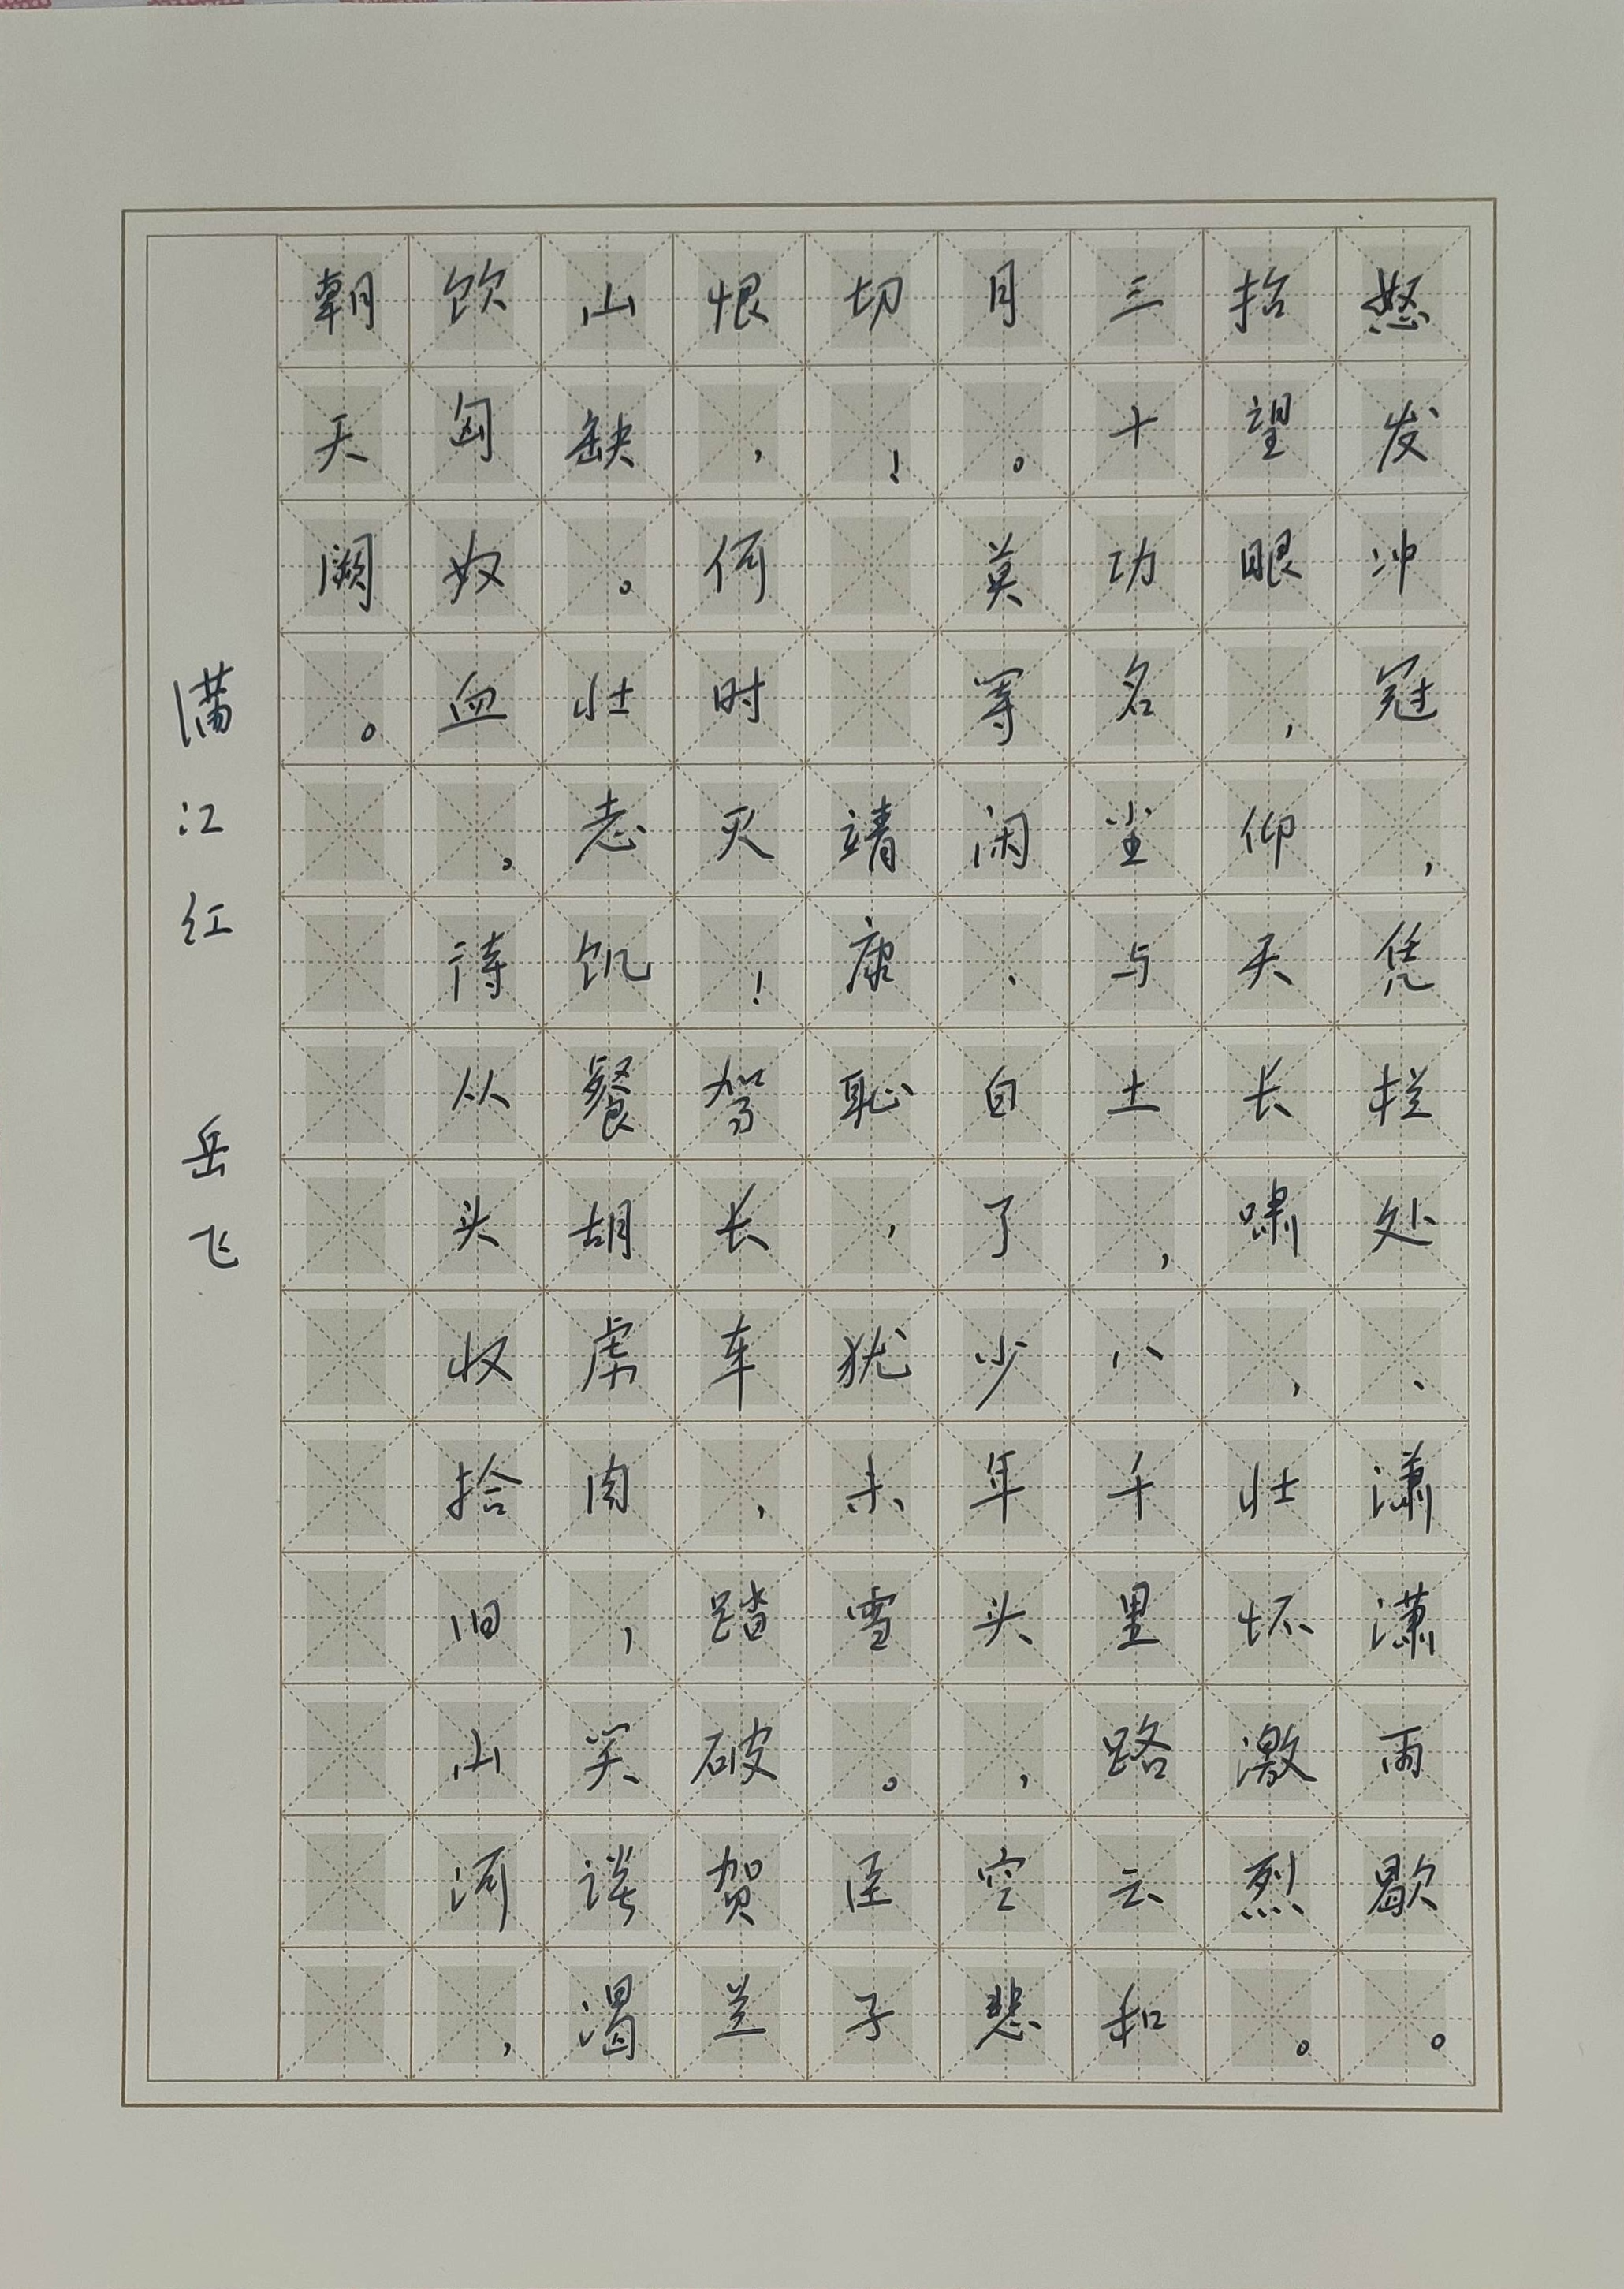 怒发冲冠，凭栏处、潇潇雨歇。
抬望眼，仰天长啸，壮怀激烈。
三十功名尘与土，八千里路云和
月。莫等闲、白了少年头，空悲
切！靖康耻，犹未雪。臣子
恨，何时灭！驾长车，踏破贺兰
山缺。壮志饥餐胡虏肉，笑谈渴
饮匈奴血。待从头收拾旧山河，
朝天阙。
满江红 岳飞